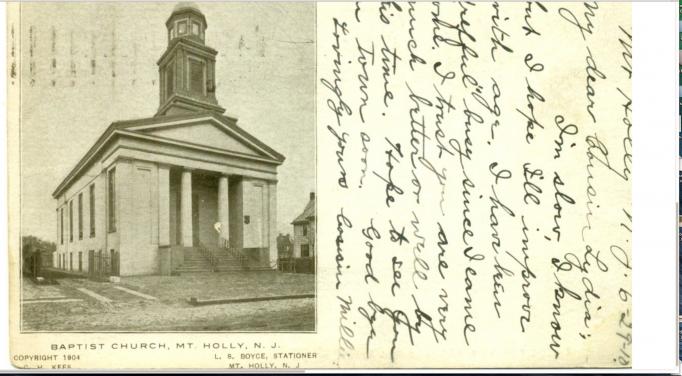 Mt Holly N. J. 6-29-10
My dear Cousin Lydia;
I'm slow I know
but I hope I'll improve
with age. I have been
busy since I came
I trust you are very
much better or well by
this time. Hope to see you
in Town soon. Good bye
Lovingly yours Cousin Milli
BAPTIST CHURCH, MT. HOLLY, N. J.
COPYRIGHT 1904
L. S. BOYCE, STATIONER
MT. HOLLY, N. J